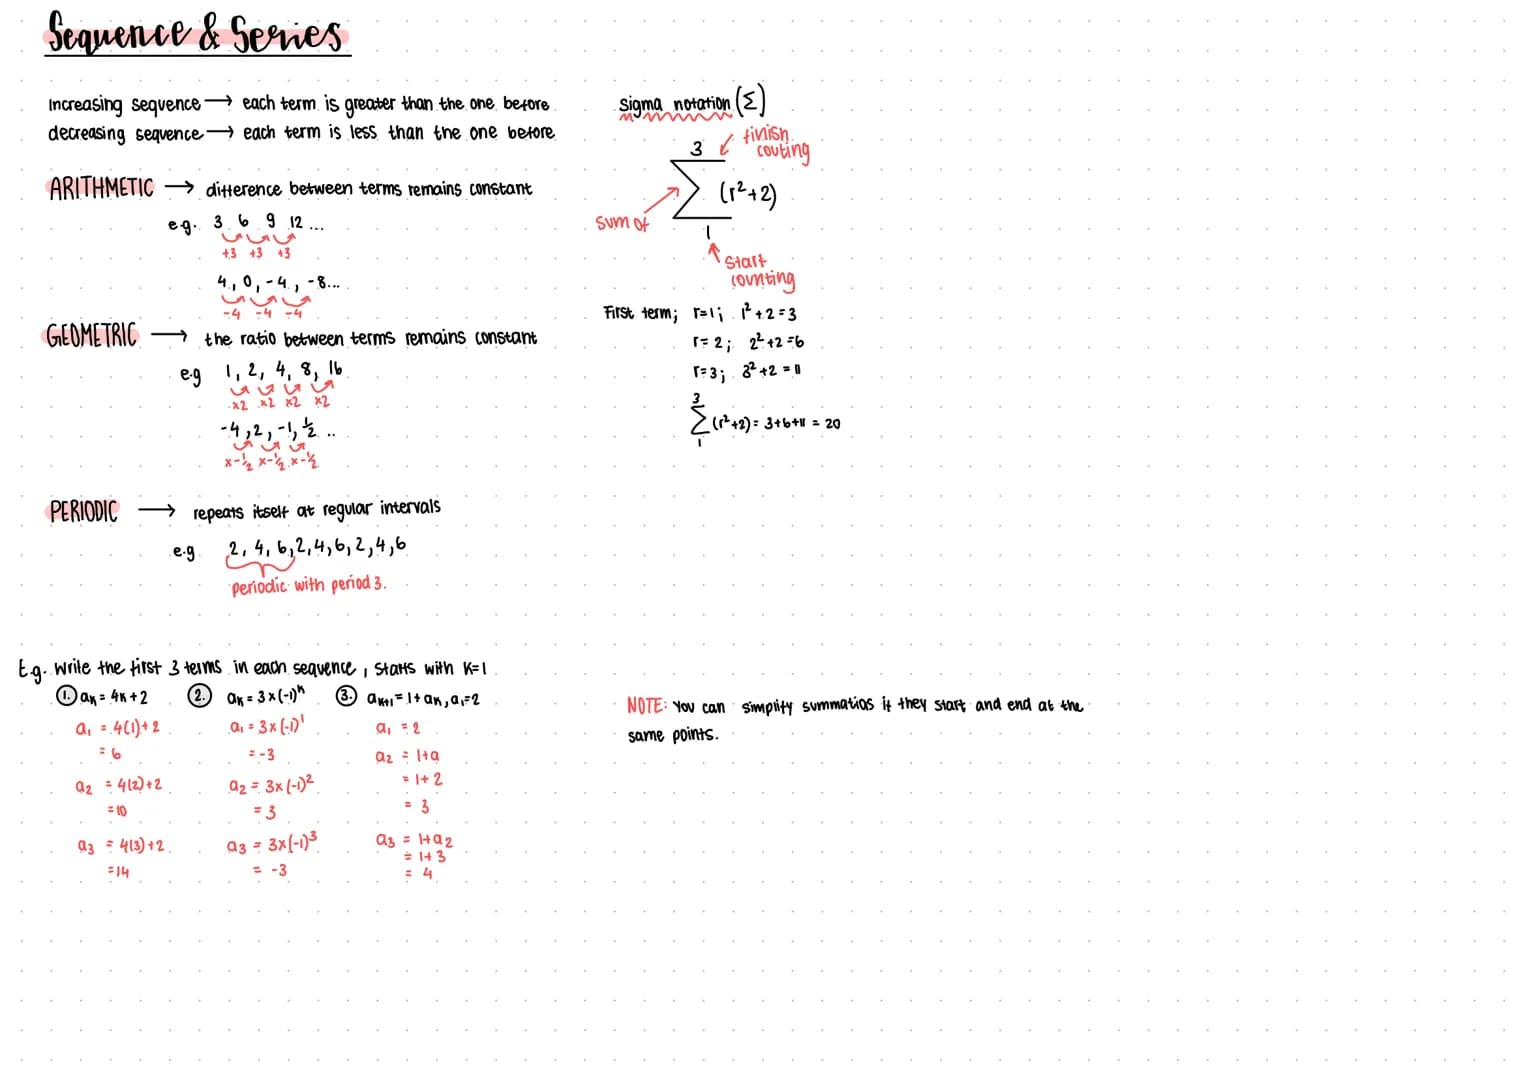 Sequence & Series
Increasing sequence → each term is greater than the one before
decreasing sequence → each term is less than the one before
ARITHMETIC → difference between terms remains constant
e.g. 3 6 9 12 ...
+3 +3 +3
4, 0, -4, -8...
-4 -4 -4
GEOMETRIC → the ratio between terms remains constant
e.g 1, 2, 4, 8, 16
×2 ×2 ×2 ×2
-4, 2, -1, ½ ..
×-½ ×-½ ×-½
PERIODIC → repeats itself at regular intervals
e.g 2, 4, 6, 2, 4, 6, 2, 4, 6
periodic with period 3.
E.g. Write the first 3 terms in each sequence, starts with K=1
1. aₖ = 4k+2
a₁ = 4(1)+2
= 6
a₂ = 4(2)+2
=10
a₃ = 4(3)+2
=14
2. aₖ = 3×(-1)ᵏ
a₁ = 3×(-1)¹
= -3
a₂ = 3×(-1)²
= 3
a₃ = 3×(-1)³
= -3
3. aₖ₊₁ = 1+aₖ, a₁=2
a₁ = 2
a₂ = 1+a
= 1+2
= 3
a₃ = 1+a₂
= 1+3
= 4
Sigma notation (Σ)
finish
couting
3
Σ (r²+2)
sum of
1
start
counting
First term; r=1; 1²+2=3
r=2; 2²+2=6
r=3; 3²+2=11
3
Σ (r²+2) = 3+6+11 = 20
1
NOTE: You can simplify summatios if they start and end at the
same points.